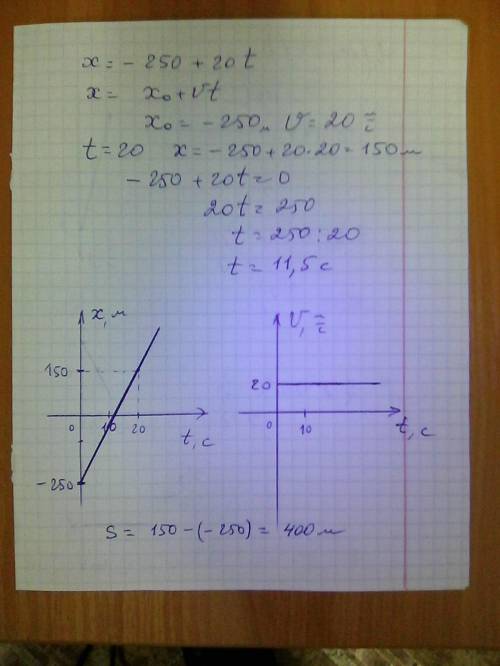 x = - 250 + 20t
x = x₀ + vt
x₀ = - 250 м v = 20 м/с
t = 20 x = - 250 + 20·20 = 150 м
- 250 + 20t = 0
20t = 250
t = 250 : 20
t = 11,5 с
x, м
150
0 10 20
t, с
- 250
V, м/с
20
0 10
t, с
S = 150 - (- 250) = 400 м